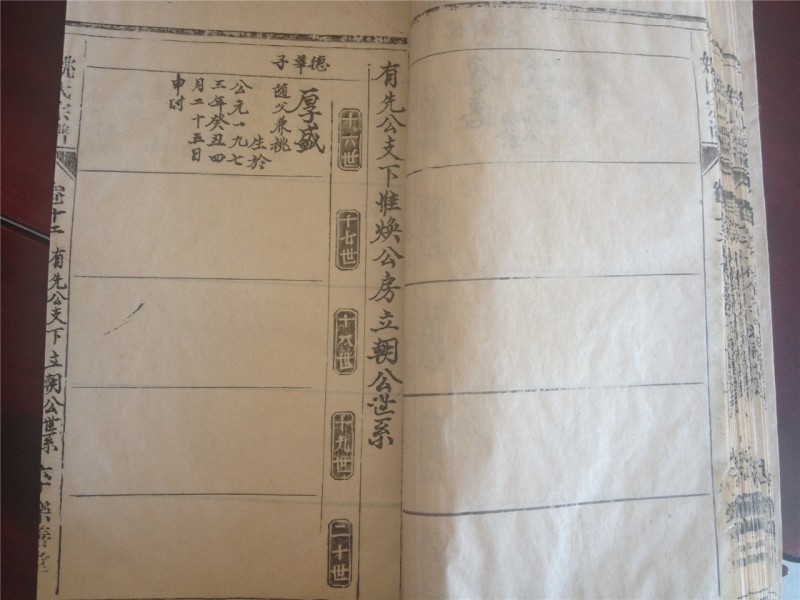 有先公支下惟焕公房立朝公世系
十六世
十七世
十八世
十九世
二十世
德華子
厚盛
随父兼祧
生於
公元一九七
三年癸丑四
月二十五日
申时
姚氏宗譜
卷十二
有先公支下立朝公世系